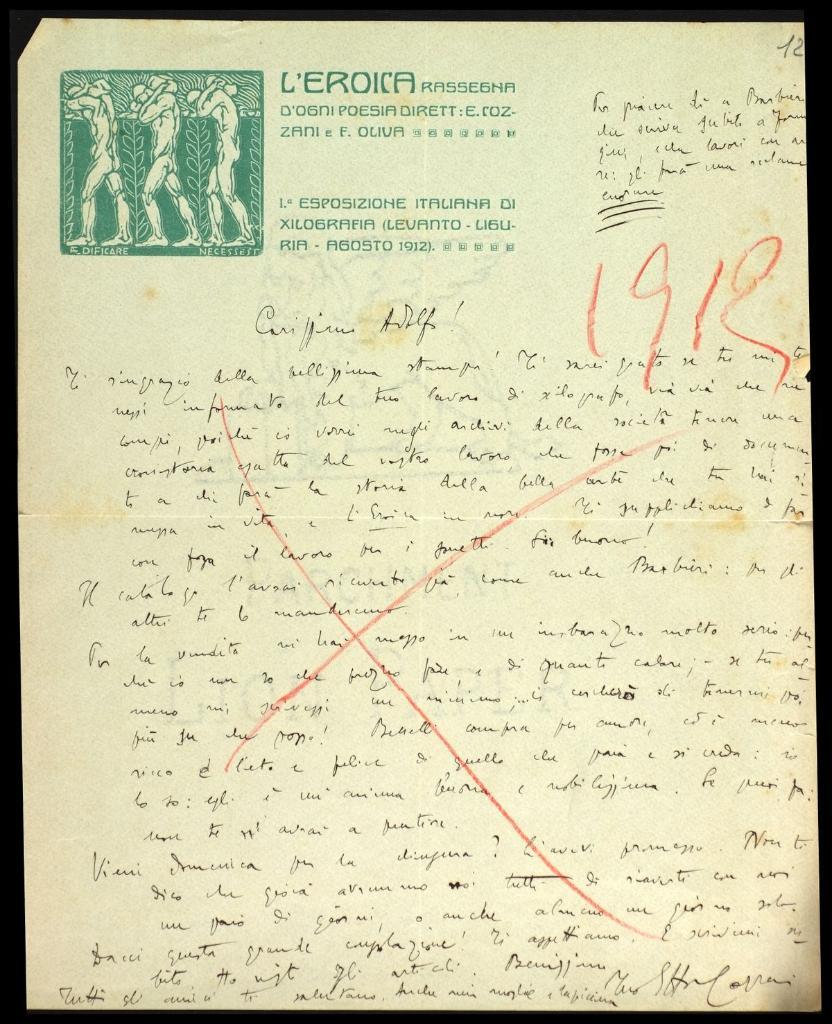 12
L'EROICA RASSEGNA
D'OGNI POESIA DIRETT: E. COZ-
ZANI E F. OLIVA
I.ª ESPOSIZIONE ITALIANA DI
XILOGRAFIA (LEVANTO - LIGU-
RIA - AGOSTO 1912).
ÆDIFICARE NECESSE EST
Per piacere dì a Barbieri
che scriva subito a
gini, che lavori con
re: gli farà una reclame
enorme
1912
Carissimo Adolfo!
Ti ringrazio della bellissima stampa! Ti sarei grato se tu mi te
nessi informato del tuo lavoro di xilografo, via via che ne
compi, poiché io vorrei negli archivi della società tenere una
cronistoria esatta del vostro lavoro che fosse poi di documen
to a chi farà la storia della bella arte che tu hai ri
messa in vita, e l'Eroica in onore. Ti supplichiamo di far
con foga il lavoro per i Sii buono!
Il catalogo l'avrai ricevuto già, come anche Barbieri: per gli
altri te lo manderemo.
Per la vendita mi hai messo in un imbarazzo molto serio: per
ché io non so che prezzo fare, e di quanto calare; - se tu al
meno mi scrivessi un minimo; ... io cercherò di tenermi
più su che posso! compra per amore, ed è meno
ricco e lieto e felice di quello che paia e si creda: io
lo so: egli è un'anima buona e nobilissima. Se puoi fa:
non te n'avrai a pentire.
Vieni domenica per la chiusura? L'avevi promesso. Non ti
dico che gioia avremmo noi tutti di riaverti con noi
un paio di giorni, o anche almeno un giorno solo.
Dacci questa grande consolazione! Ti aspettiamo. E scrivimi su-
bito. Ho visto gli articoli. Benissimo
Tutti gli amici ti salutano. Anche mia moglie e la piccina
Tuo Ettore Cozzani